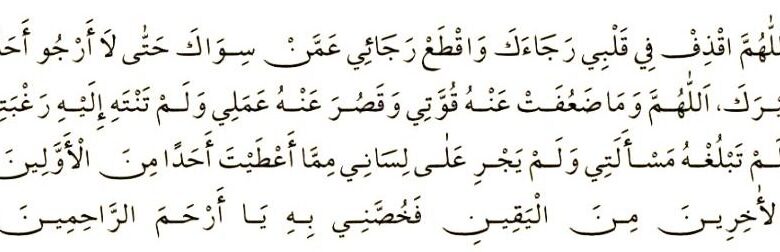 اللّٰهُمَّ اقْذِفْ فِي قَلْبِي رَجَاءَكَ وَاقْطَعْ رَجَائِي عَمَّنْ سِوَاكَ حَتّٰى لَا أَرْجُو
اَللّٰهُمَّ وَمَا ضَعُفَتْ عَنْهُ قُوَّتِي وَقَصُرَ عَنْهُ عَمَلِي وَلَمْ تَنْتَهِ إِلَيْهِ
تَبْلُغْهُ مَسْأَلَتِي وَلَمْ يَجْرِ عَلٰى لِسَانِي مِمَّا أَعْطَيْتَ أَحَدًا مِنَ الْأَوَّلِينَ
مِنَ الْيَقِينِ فَخُصَّنِي بِهِ يَا أَرْحَمَ الرَّاحِمِينَ